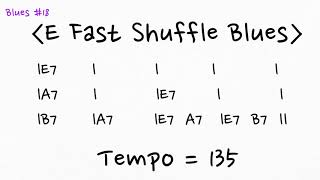 Blues #13
<E Fast Shuffle Blues>
|E7 | | | |
|A7 | |E7 | |
|B7 |A7 |E7 A7 |E7 B7 ||
Tempo = 135